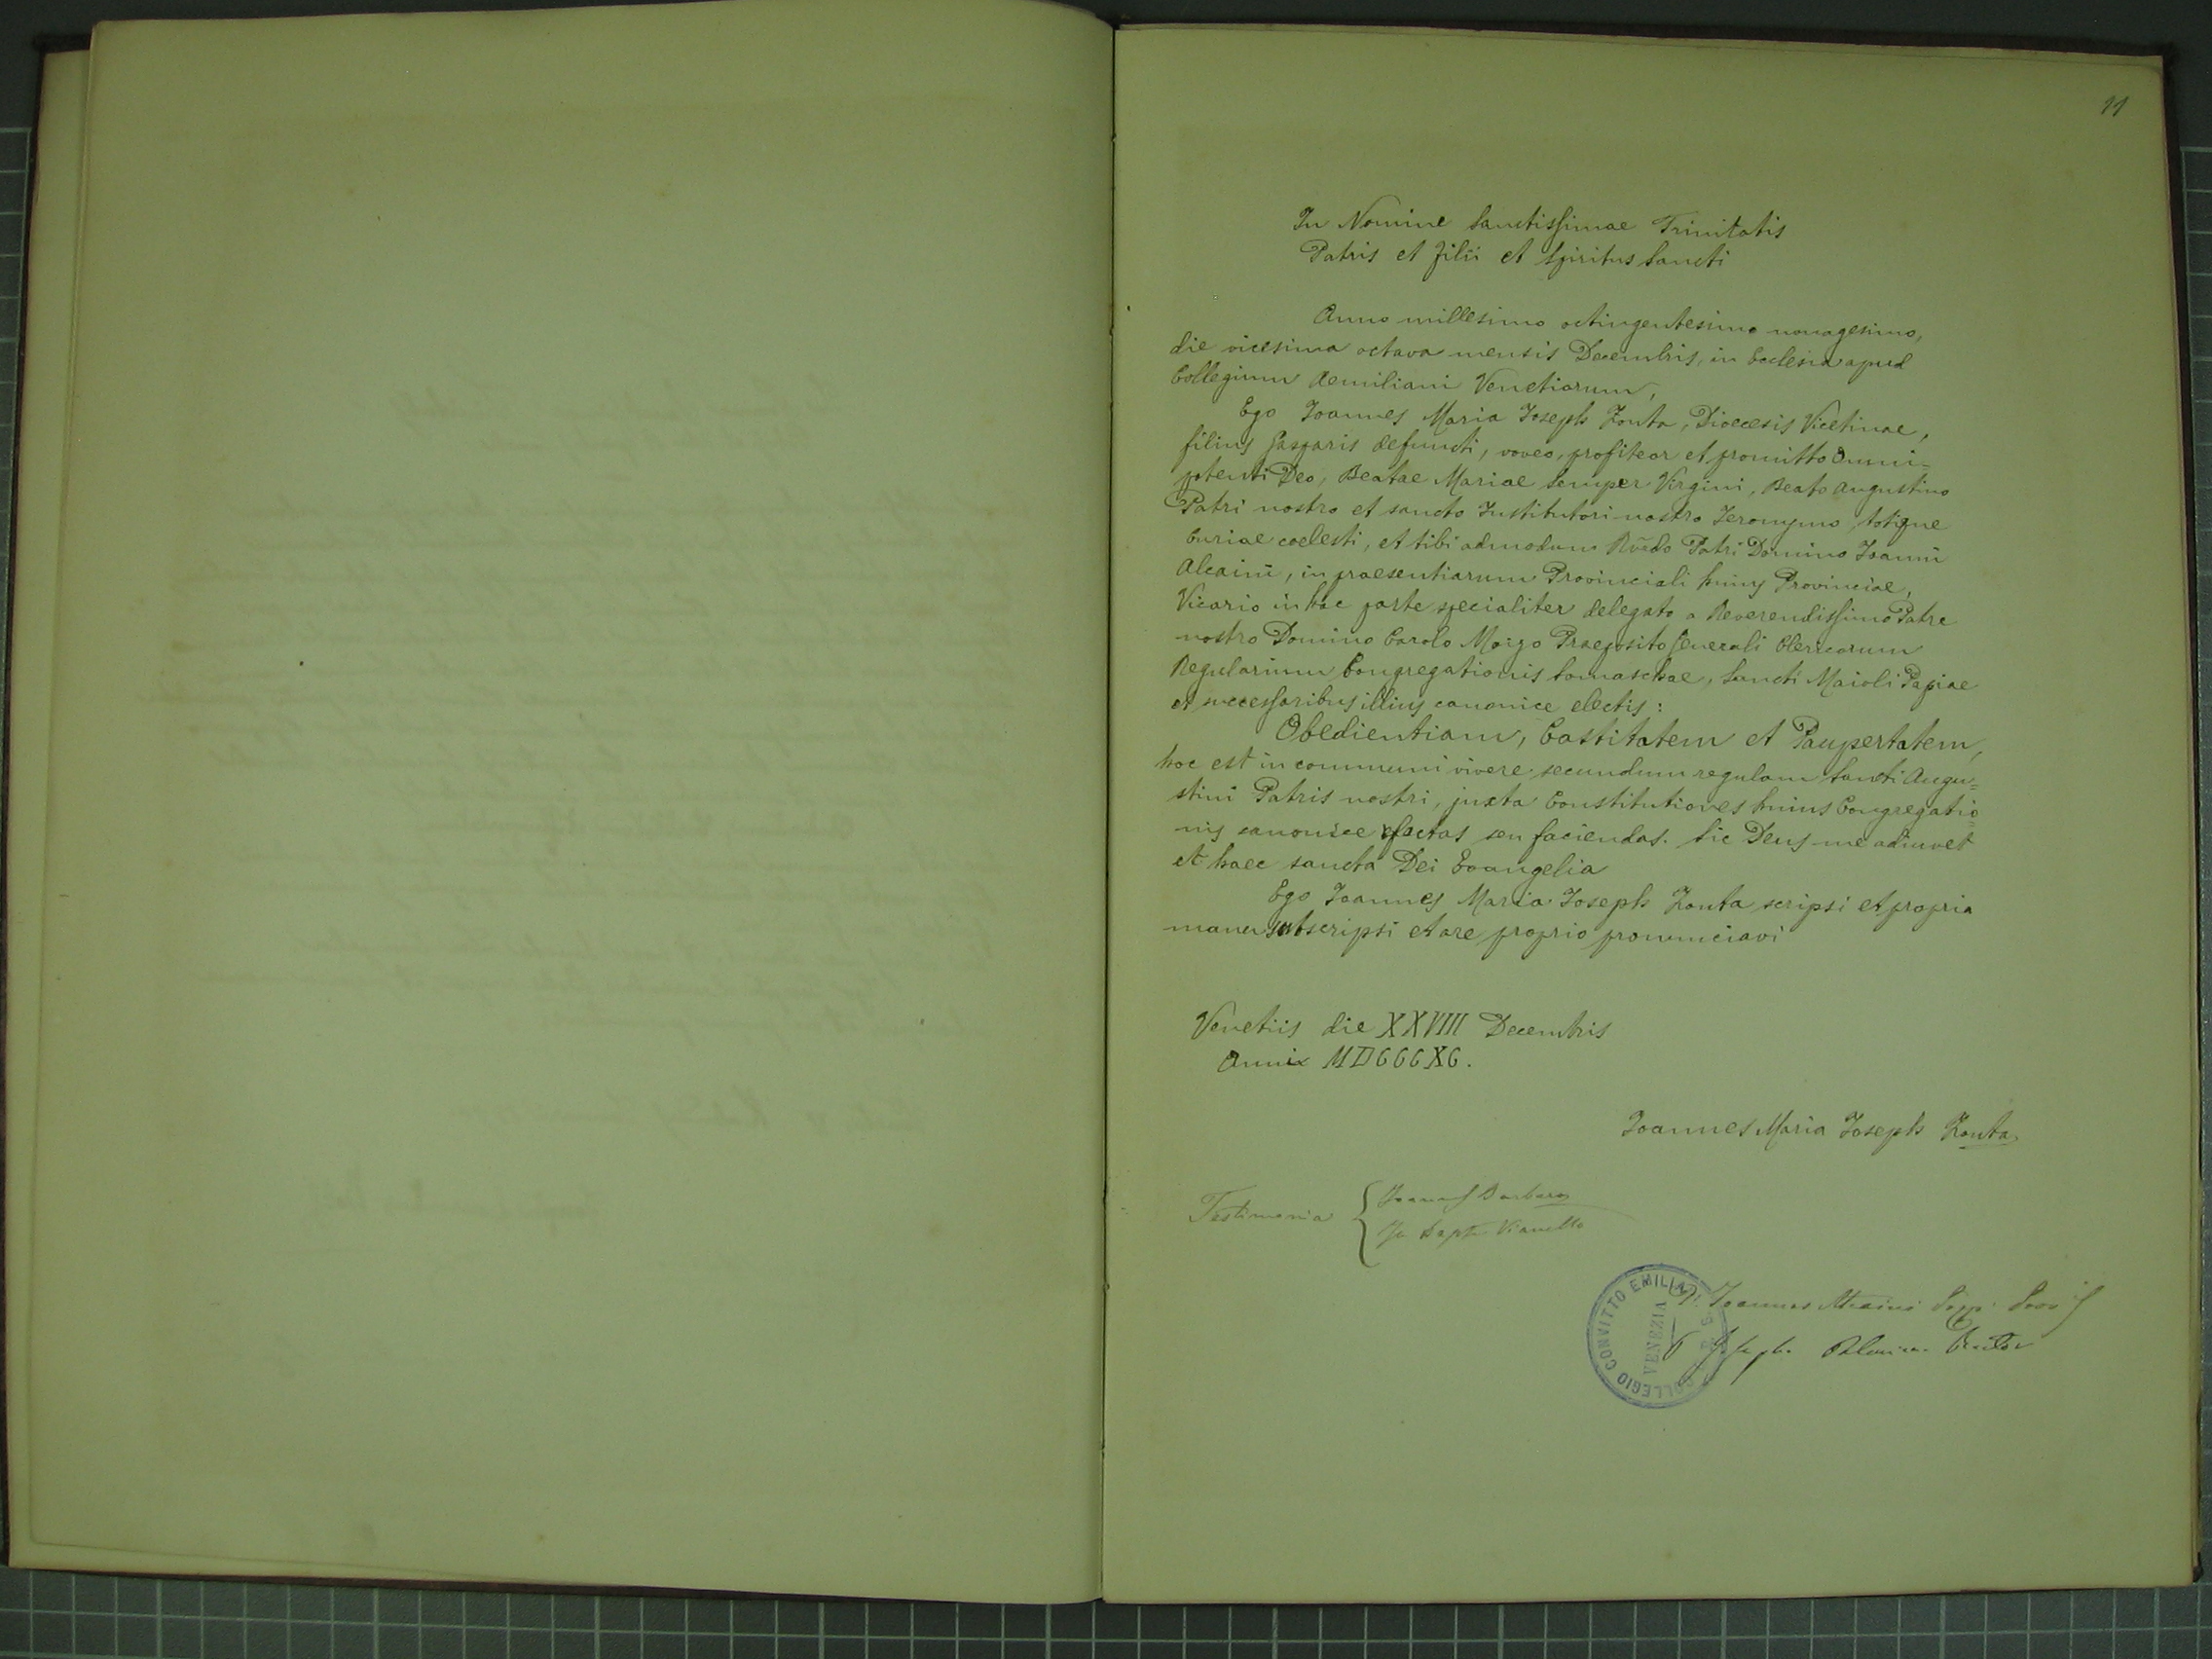 11
In Nomine Sanctissimae Trinitatis
Patris et Filii et Spiritus Sancti
Anno millesimo octingentesimo nonagesimo,
die vicesima octava mensis Decembris, in Ecclesia apud
Collegium Aemiliani Venetiarum,
Ego Joannes Maria Joseph Zonta, Dioecesis Vicetinae,
filius Gasparis defuncti, voveo, profiteor et promitto Omni=
potenti Deo, Beatae Mariae Semper Virgini, Beato Augustino
Patri nostro et sancto Institutori nostro Ieronymo, totique
Curiae coelesti, et tibi admodum Rvdo Patri Domino Joanni
Alcaini, in praesentiarum Provinciali huius Provinciae,
Vicario in hac parte specialiter delegato a Reverendissimo Patre
nostro Domino Carolo Moizo Praeposito Generali Clericorum
Regularium Congregationis Somaschae, Sancti Maioli Papiae
et successoribus illius canonice electis:
Obedientiam, Castitatem et Paupertatem,
hoc est in communi vivere secundum regulam Sancti Augu=
stini Patris nostri, juxta Constitutiones huius Congregatio=
nis canonice factas seu faciendas. Sic Deus me adiuvet
et haec sancta Dei Evangelia
Ego Joannes Maria Joseph Zonta scripsi et propria
manu subscripsi et ore proprio pronunciavi
Venetiis die XXVIII Decembris
Anni MDCCCXC.
Joannes Maria Joseph Zonta
Testimonia
Joannes Barbaro
Jo Bapta Vianello
D. Joannes Alcaini
Joseph Palmieri
COLLEGIO CONVITTO EMILIANI
VENEZIA